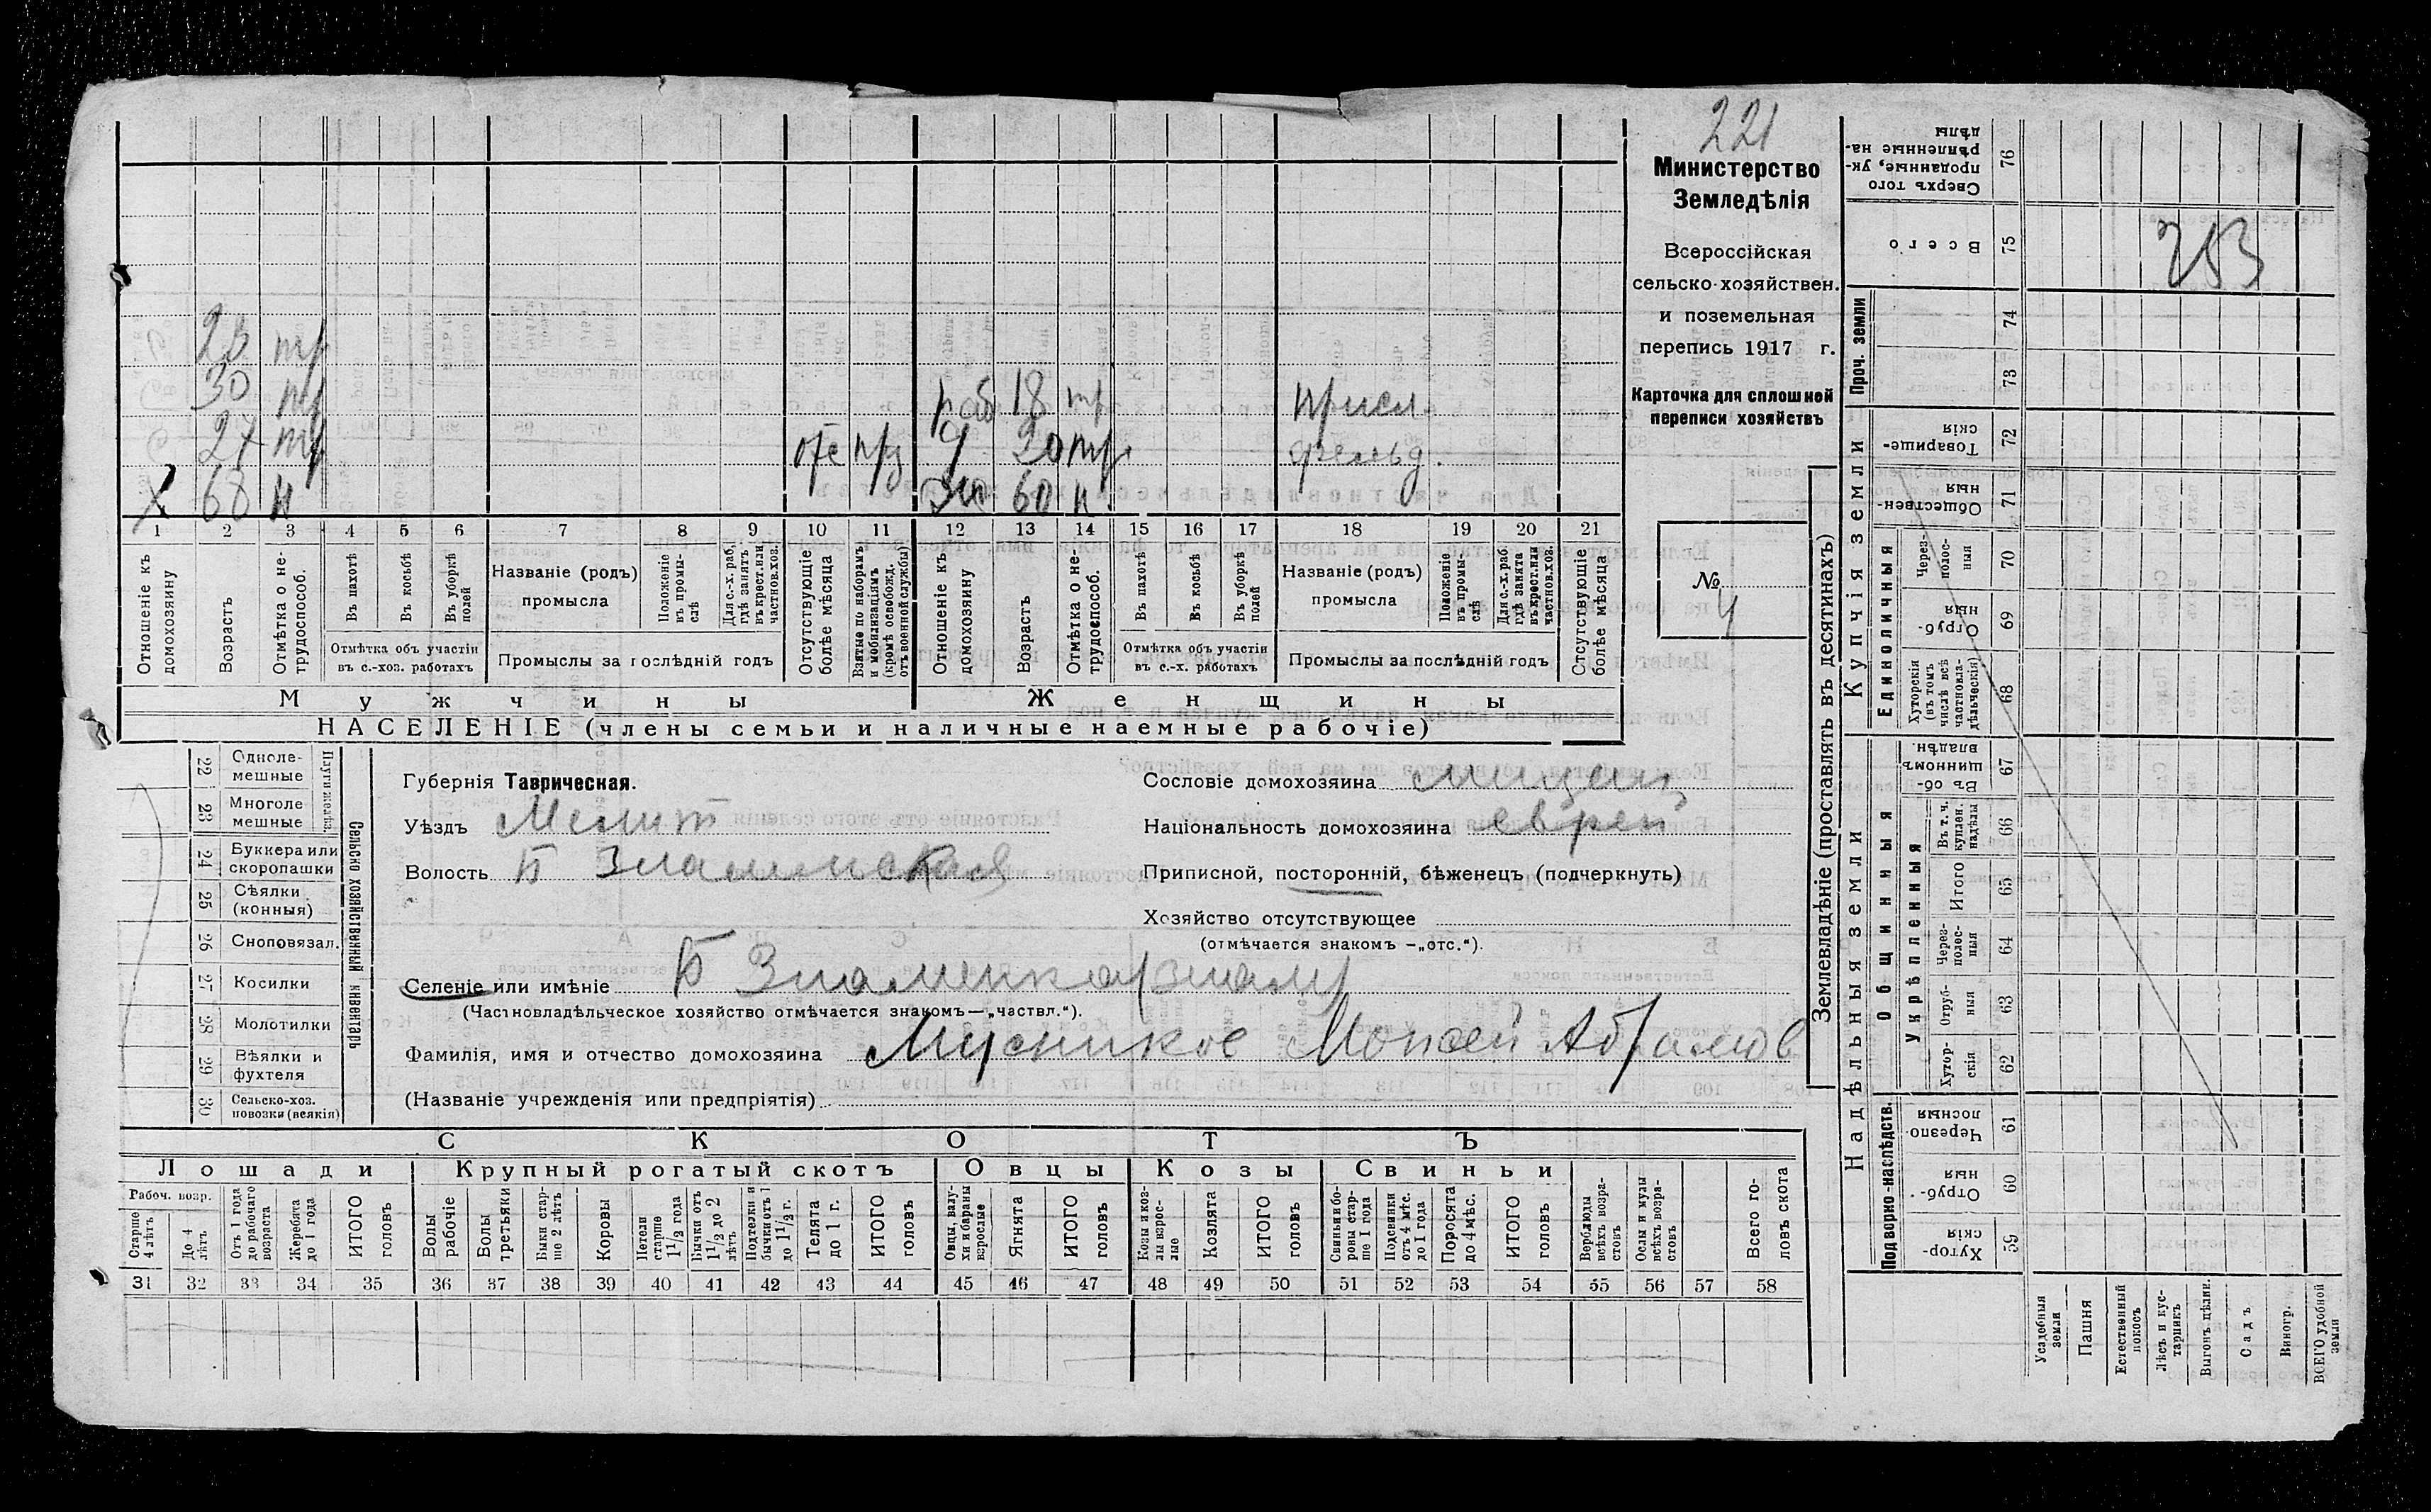 221
Министерство
Земледѣлія
Всероссійская
сельско-хозяйствен.
и поземельная
перепись 1917 г.
Карточка для сплошной
переписи хозяйствъ
№
4
30
раб 18 тр присл.
27 отс 20 фельд.
Х 60 н 60 н
1 2 3 4 5 6 7 8 9 10 11 12 13 14 15 16 17 18 19 20 21
Отношеніе къ домохозяину
Возрастъ
Отмѣтка о нетрудоспособ.
Въ пахотѣ
Въ косьбѣ
Въ уборкѣ полей
Отмѣтка объ участіи въ с.-хоз. работахъ
Названіе (родъ) промысла
Положеніе въ промыслѣ
Для с.-х. раб. гдѣ занятъ въ крест. или частнов. хоз.
Промыслы за послѣдній годъ
Отсутствующіе болѣе мѣсяца
Взятые по наборамъ и мобилизаціямъ (кромѣ освобожд. отъ военной службы)
Отношеніе къ домохозяину
Возрастъ
Отмѣтка о нетрудоспособ.
Въ пахотѣ
Въ косьбѣ
Въ уборкѣ полей
Отмѣтка объ участіи въ с.-х. работахъ
Названіе (родъ) промысла
Положеніе въ промыслѣ
Для с.-х. раб. гдѣ занята въ крест. или частнов. хоз.
Промыслы за послѣдній годъ
Отсутствующіе болѣе мѣсяца
Мужчины
Женщины
НАСЕЛЕНІЕ (члены семьи и наличные наемные рабочіе)
22 Однолемешные
23 Многолемешные
Плуги желѣз.
24 Буккера или скоропашки
25 Сѣялки (конныя)
26 Сноповязал.
27 Косилки
28 Молотилки
29 Вѣялки и фухтеля
30 Сельско-хоз. повозки (всякія)
Сельско хозяйственный инвентарь
Губернія Таврическая.
Уѣздъ Мелит
Волость Б Знаменская
Сословіе домохозяина мищан
Національность домохозяина еврей
Приписной, посторонній, бѣженецъ (подчеркнуть)
Хозяйство отсутствующее
(отмѣчается знакомъ —„отс.“).
Селеніе или имѣніе Б Знаменка (Знам)
(Частновладѣльческое хозяйство отмѣчается знакомъ—„частвл.“).
Фамилія, имя и отчество домохозяина Моисей Абрамов
(Названіе учрежденія или предпріятія)
СКОТЪ
Лошади
Крупный рогатый скотъ
Овцы
Козы
Свиньи
Рабоч. возр.
Старше 4 лѣтъ
До 4 лѣтъ
Отъ 1 года до рабочаго возраста
Жеребята до 1 года
ИТОГО головъ
Волы рабочіе
Волы третьяки
Быки старше 2 лѣтъ
Коровы
Нетели старше 1 1/2 года
Бычки отъ 1 1/2 до 2 лѣтъ
Подтелки и бычки отъ 1 до 1 1/2 г.
Телята до 1 г.
ИТОГО головъ
Овцы, валухи и бараны взрослые
Ягнята
ИТОГО головъ
Козы и козлы взрослые
Козлята
ИТОГО головъ
Свиньи и боровы старше 1 года
Подсвинки отъ 4 мѣс. до 1 года
Поросята до 4 мѣс.
ИТОГО головъ
Верблюды всѣхъ возрастовъ
Ослы и мулы всѣхъ возрастовъ
Всего головъ скота
31 32 33 34 35 36 37 38 39 40 41 42 43 44 45 46 47 48 49 50 51 52 53 54 55 56 57 58
Землевладѣніе (проставлять въ десятинахъ)
Надѣльныя земли
Купчія земли
Проч. земли
Подворно-наслѣдств.
Общинныя
Укрѣпленныя
Единоличныя
76 Сверхъ того проданные, укрѣпленные надѣлы
75 Всего
253
74
73
72 Товарищескія
71 Общественныя
70 Черезполосныя
69 Отрубныя
68 Хуторскія (въ томъ числѣ всѣ частновладѣльческія)
67 Въ общинномъ владѣн.
66 Въ т. ч. куплен. надѣлы
65 Итого
64 Черезполосныя
63 Отрубныя
62 Хуторскія
61 Черезполосныя
60 Отрубныя
59 Хуторскія
Усадебныя земли
Пашня
Естественный покосъ
Лѣсъ и кустарникъ
Выгонъ цѣлик.
Садъ
Виногр.
ВСЕГО удобной земли